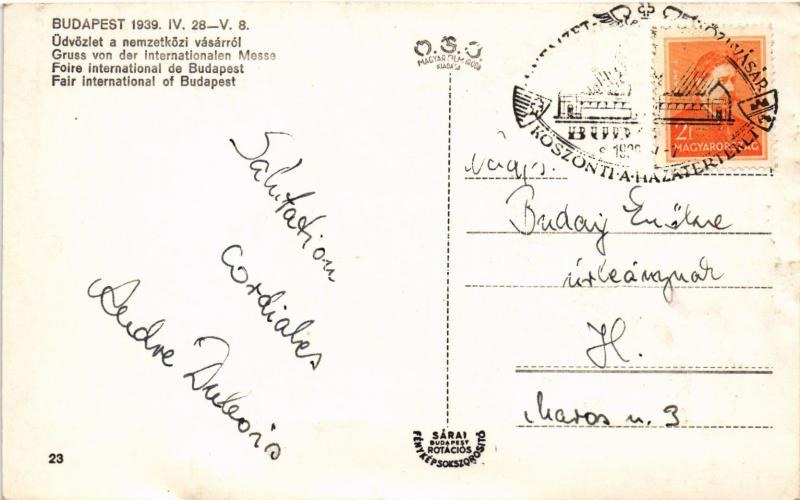 BUDAPEST 1939. IV. 28—V. 8.
Üdvözlet a nemzetközi vásárról
Gruss von der Internationalen Messe
Foire international de Budapest
Fair international of Budapest
O.S.J
MAGYAR FILM IRODA
KIADÁSA
KÖSZÖNTI·A·HAZATÉRT
2f
MAGYARORSZÁG
Salutation
cordiales
Andre Dubois
Budaÿ Emőke
úrleánynak
H.
Maros u. 3
SÁRAI
BUDAPEST
ROTÁCIÓS
FÉNYKÉPSOKSZOROSITÓ
23